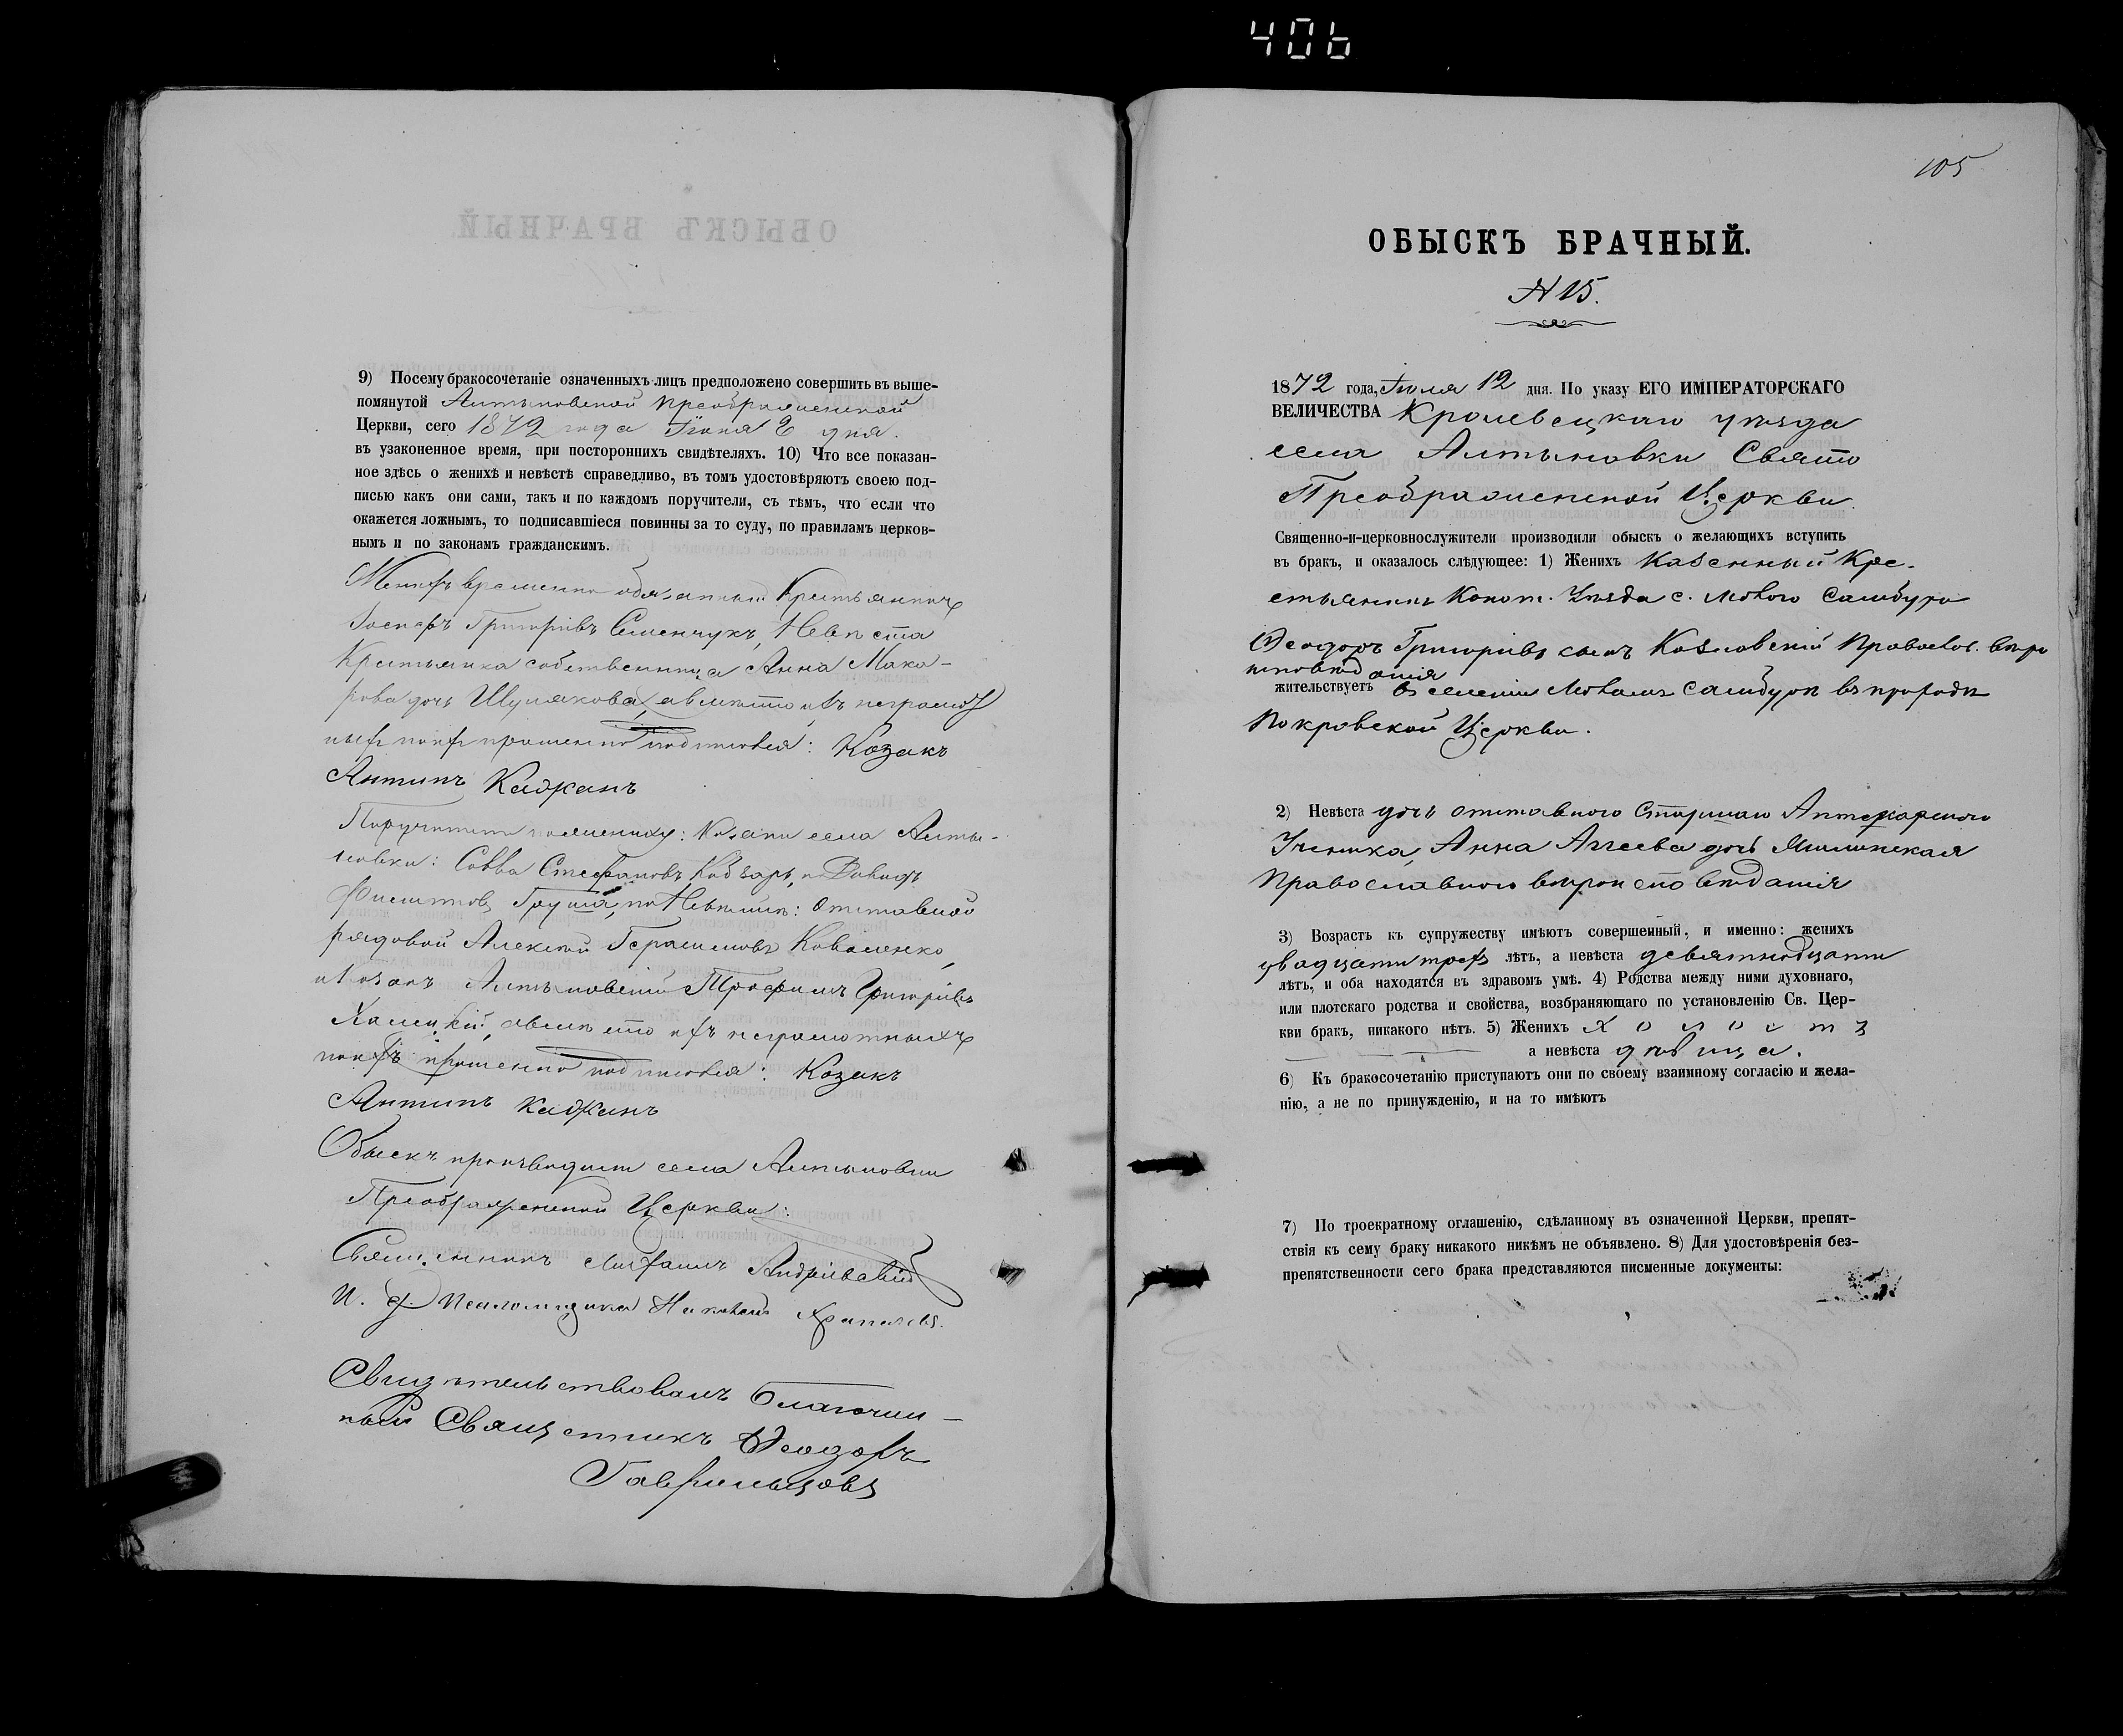 406
9) Посему бракосочетаніе означенныхъ лицъ предположено совершить въ выше-
помянутой Алтыновской Преображенской
Церкви, сего 1872 года Іюня 2 дня.
въ узаконенное время, при постороннихъ свидѣтеляхъ. 10) Что все показан-
ное здѣсь о женихѣ и невѣстѣ справедливо, въ томъ удостовѣряютъ своею под-
писью какъ они сами, такъ и по каждомъ поручители, съ тѣмъ, что если что
окажется ложнымъ, то подписавшіеся повинны за то суду, по правиламъ церков-
нымъ и по законамъ гражданскимъ.
Женихъ временно обязанный Крестьянинъ
Григоріевъ Семенчукъ, Невѣста
Крестьянка собственница Анна Мака-
рова дочь Шулякова, а вмѣсто ихъ неграмот
ныхъ по ихъ прошенію подписался: Козакъ
Антипъ Каджанъ
Поручители по жениху: Козаки села Алты-
новки: Савва Стефановъ Кобзарь, и Давидъ
Груша, по Невѣстѣ: Отставной
рядовой Алексѣй Герасимовъ Коваленко,
и Козакъ Алтыновскій Трофимъ Григоріевъ
а вмѣсто ихъ неграмотныхъ
по ихъ прошенію подписался: Козакъ
Антипъ Каджанъ
Обыскъ производили села Алтыновки
Преображенской Церкви:
Священникъ Андріевскій
И. д. Псаломщика
Свидѣтельствовалъ Благочин-
ный Священникъ Ѳеодоръ
Гаврильцовъ
105
ОБЫСКЪ БРАЧНЫЙ.
№ 15.
1872 года, Іюля 12 дня. По указу ЕГО ИМПЕРАТОРСКАГО
ВЕЛИЧЕСТВА Кролевецкаго уѣзда
села Алтыновки Свято
Преображенской Церкви
Священно-и-церковнослужители производили обыскъ о желающихъ вступить
въ бракъ, и оказалось слѣдующее: 1) Женихъ Казенный Кре-
стьянинъ Коното. Уѣзда с. Новаго Самбура
Ѳеодоръ Григоріевъ сынъ Козловскій Православ. вѣро
исповѣданія
жительствуетъ въ селеніи Новомъ Самбурѣ въ приходѣ
Покровской Церкви.
2) Невѣста дочь отставного Старшаго Аптекарскаго
Ученика, Анна Аггеева дочь
Православнаго вѣроисповѣданія
3) Возрастъ къ супружеству имѣютъ совершенный, и именно: женихъ
двадцати трехъ лѣтъ, а невѣста девятнадцати
лѣтъ, и оба находятся въ здравомъ умѣ. 4) Родства между ними духовнаго,
или плотскаго родства и свойства, возбраняющаго по установленію Св. Цер-
кви бракъ, никакого нѣтъ. 5) Женихъ холостъ
а невѣста дѣвица.
6) Къ бракосочетанію приступаютъ они по своему взаимному согласію и жела-
нію, а не по принужденію, и на то имѣютъ
7) По троекратному оглашенію, сдѣланному въ означенной Церкви, препят-
ствія къ сему браку никакого никѣмъ не объявлено. 8) Для удостовѣренія без-
препятственности сего брака представляются писменные документы: